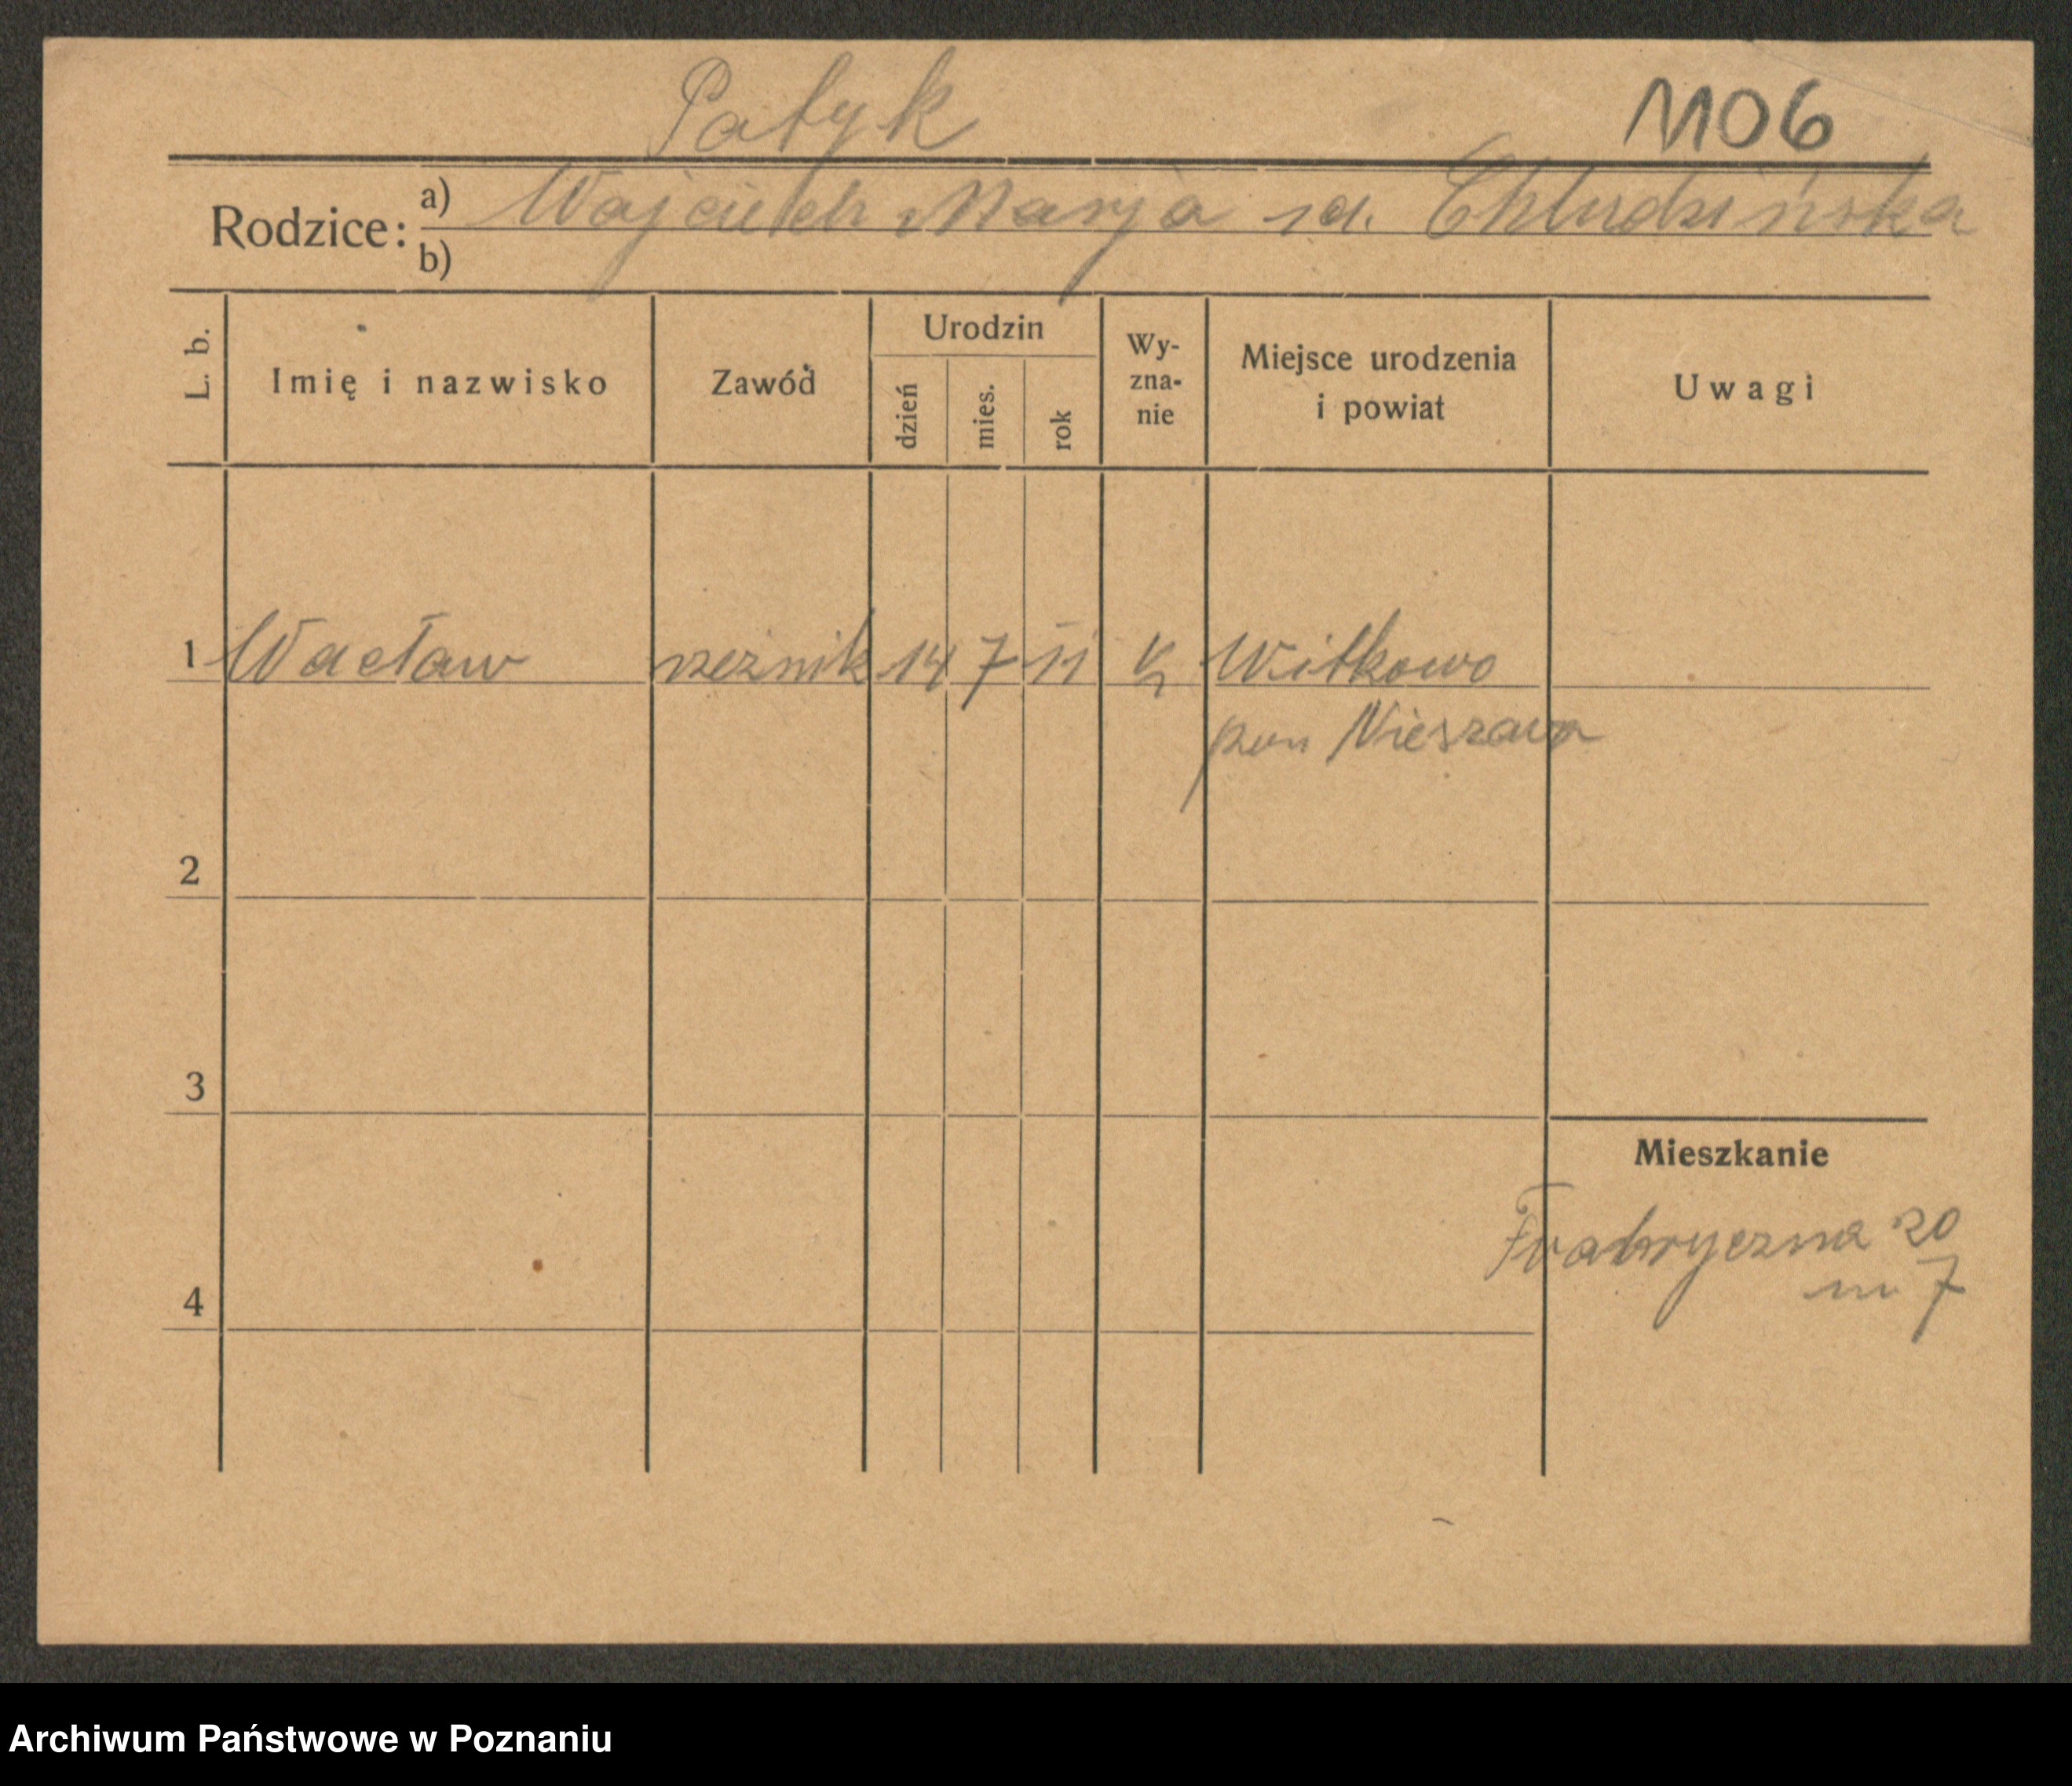 Patyk 1106
Rodzice: a) Wojciech Marja zd. Chludzińska
b)
L. b. Imię i nazwisko Zawód Urodzin dzień mies. rok Wy-zna-nie Miejsce urodzenia i powiat Uwagi
1 Wacław rzeźnik 14 7 11 K Witkowo
pow Nieszawa
2
3
Mieszkanie
Frabryczna 20
4 m 7
Archiwum Państwowe w Poznaniu